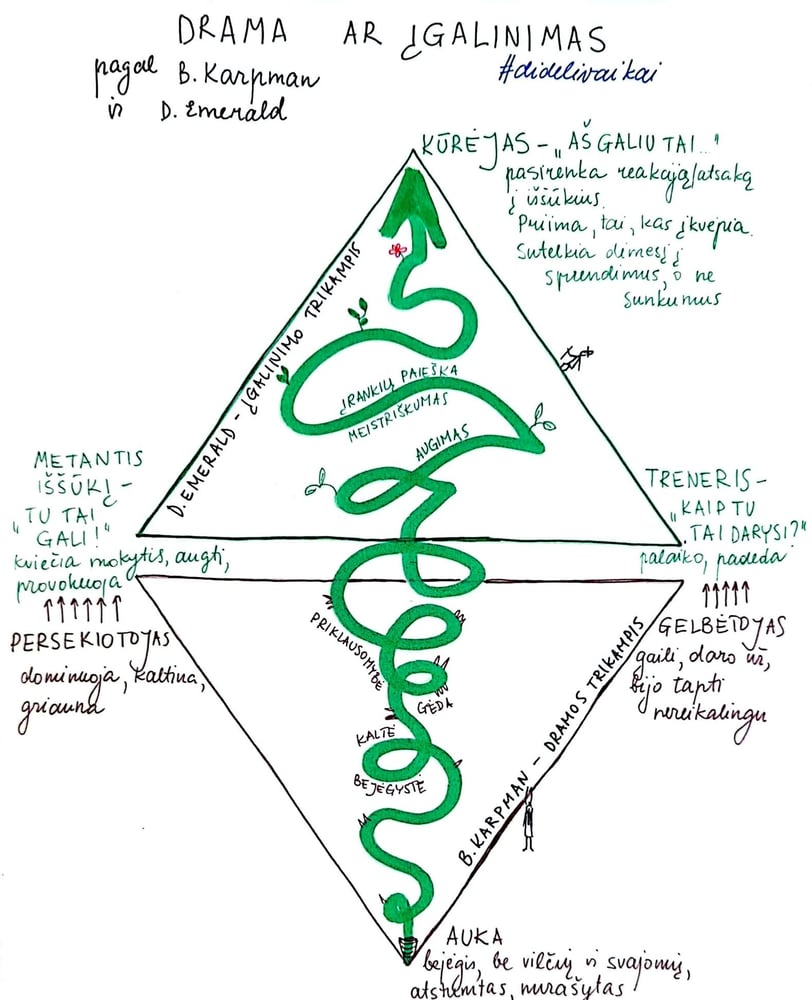 DRAMA AR ĮGALINIMAS
pagal B. Karpman
ir D. Emerald
#didelivaikai
KŪRĖJAS - „AŠ GALIU TAI..."
pasirenka reakciją/atsaką
į iššūkius.
Priima, tai, kas įkvepia.
Sutelkia dėmesį į
sprendimus, o ne
sunkumus
D. EMERALD - ĮGALINIMO TRIKAMPIS
ĮRANKIŲ PAIEŠKA
MEISTRIŠKUMAS
AUGIMAS
METANTIS
IŠŠŪKĮ -
"TU TAI
GALI!"
kviečia mokytis, augti,
provokuoja
TRENERIS -
„KAIP TU
TAI DARYSI?"
palaiko, padeda
PERSEKIOTOJAS
dominuoja, kaltina,
griauna
GELBĖTOJAS
gaili, daro už,
bijo tapti
nereikalingu
PRIKLAUSOMYBĖ
GĖDA
KALTĖ
BEJĖGYSTĖ
B. KARPMAN - DRAMOS TRIKAMPIS
AUKA
bejėgis, be vilčių ir svajonių,
atstumtas, nurašytas